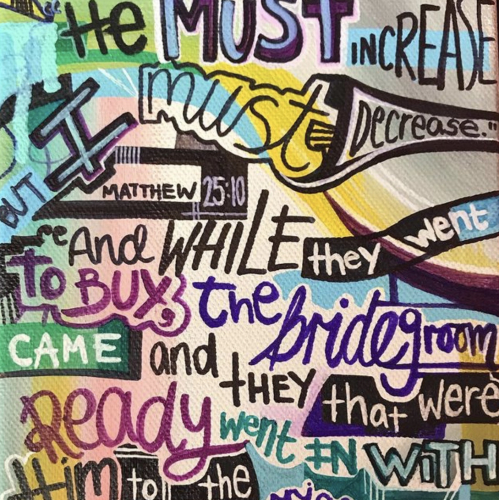 "He MUST INCREASE
BUT I must Decrease."
MATTHEW 25:10
"And WHILE they went
to BUY, the bridegroom
CAME and tHEY that were
Ready went IN WiTH
Him to the